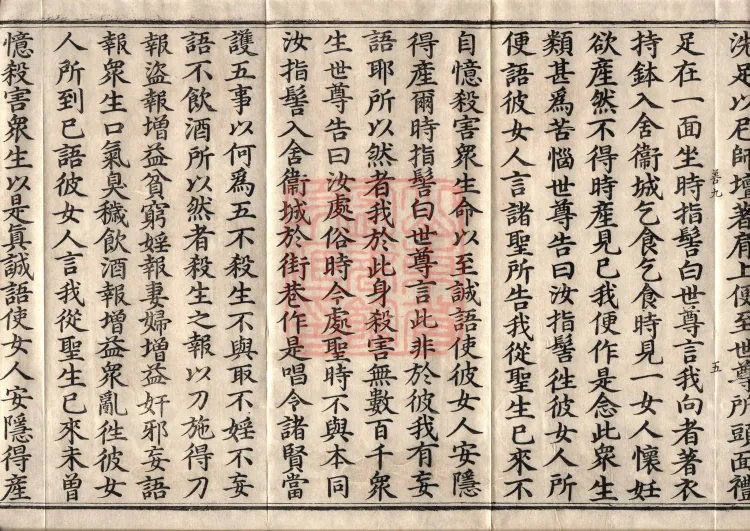 洗足以尼師壇著肩上便至世尊所頭面禮
善九 五
足在一面坐時指髻白世尊言我向者著衣
持鉢入舍衞城乞食乞食時見一女人懷妊
欲產然不得時產見已我便作是念此衆生
類甚爲苦惱世尊告曰汝指髻徃彼女人所
便語彼女人言諸聖所告我從聖生已來不
自憶殺害衆生命以至誠語使彼女人安隱
得產爾時指髻白世尊言此非於彼我有妄
語耶所以然者我於此身殺害無數百千衆
生世尊告曰汝處俗時今處聖時不與本同
汝指髻入舍衞城於街巷作是唱令諸賢當
護五事以何爲五不殺生不與取不婬不妄
語不飲酒所以然者殺生之報以刀施得刀
報盜報增益貧窮婬報妻婦增益奸邪妄語
報衆生口氣臭穢飲酒報增益衆亂徃彼女
人所到已語彼女人言我從聖生已來未曾
憶殺害衆生以是眞誠語使女人安隱得產